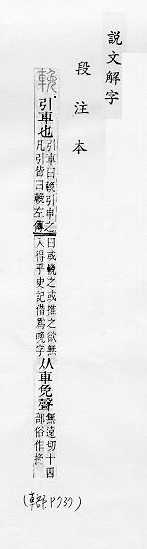 說文解字
段注本
輓 引車也引車曰輓引申之凡引皆曰輓左傳曰或輓之或推之欲無入得乎史記借爲晚字从車免聲無遠切十四部俗作挽
(車部 P737)